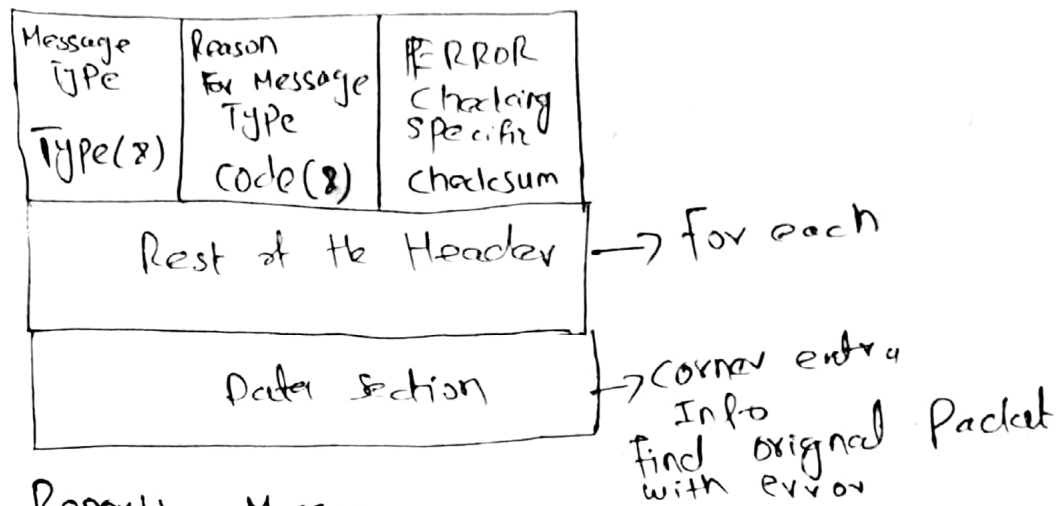 Message
Type
Type(8)
Reason
For Message
Type
Code(8)
ERROR
Checking
Specific
Checksum
Rest of the Header
→ For each
Data Section
→ Corner extra
Info
Find orignal Packet
with error